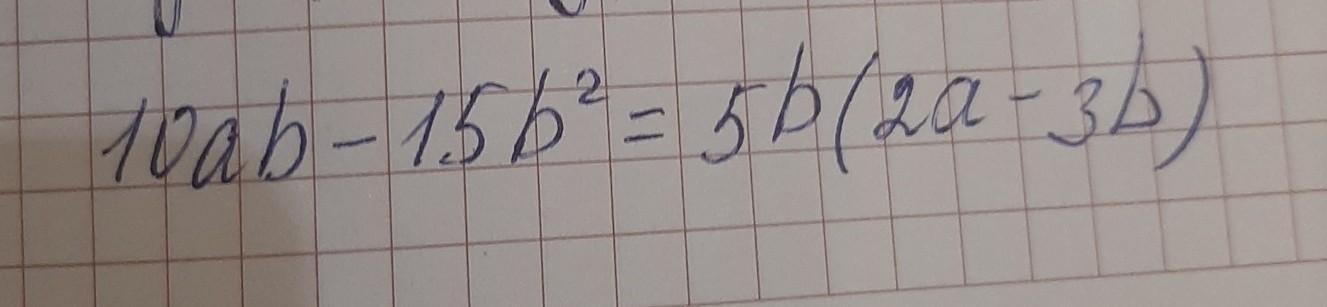 10ab - 15b² = 5b(2a - 3b)